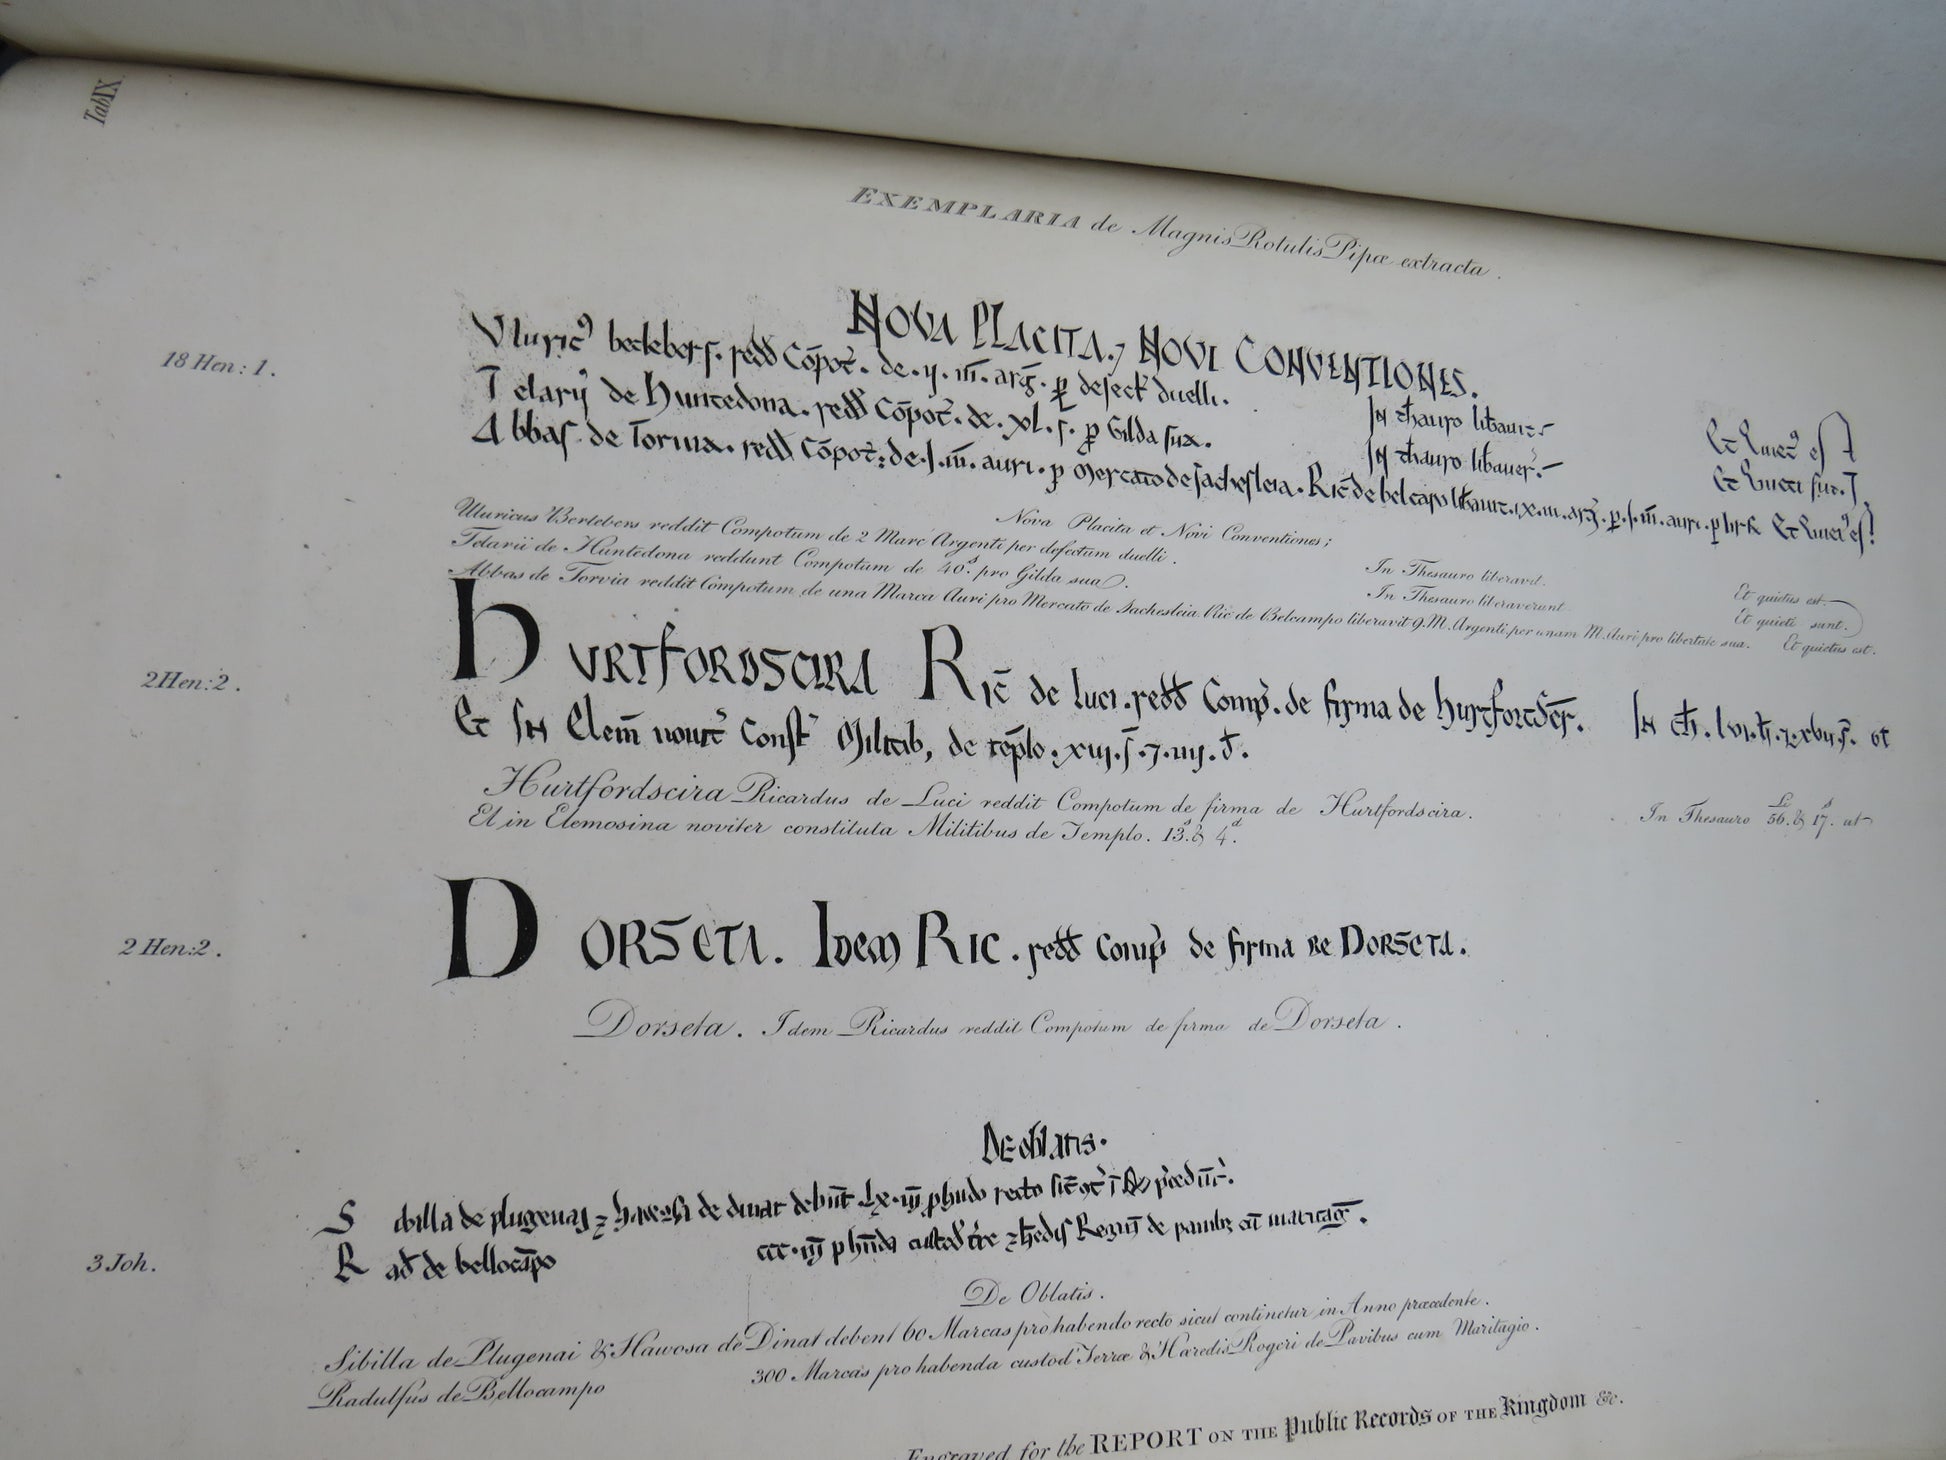 Tab IX
EXEMPLARIA de Magnis Rotulis Pipæ extracta.
18 Hen: 1.
NOVA PLACITA, ⁊ NOVI CONVENTIONES.
Vluric⁹ beclebers. redd Cōpot̄. de. ij. m̄. arḡ. ꝑ defect duelli. In th̄auro lib̄auit. Et Quiet⁹ est
Telarij de Huntedona. redd Cōpot̄. de. xl. s. ꝓ Gilda sua. In th̄auro lib̄auer̄. Et Quieti sut.
Abbas de Toruia. redd Cōpot̄. de. j. m̄. auri. ꝓ Mercato de sachesleia. Ric̄ de belcapo lib̄auit. ix. m. arḡ. ꝑ. j. m̄. auri. ꝓ Et Quiet⁹ est
Nova Placita et Novi Conventiones;
Uluricus Berlebers reddit Compotum de 2 Marc Argenti per defectum duelli. In Thesauro liberavit. Et quietus est.
Telarii de Huntedona reddunt Compotum de 40.ˢ pro Gilda sua. In Thesauro liberaverunt Et quieti sunt.
Abbas de Torvia reddit Compotum de una Marca Auri pro Mercato de Sachesleia. Ric de Belcampo liberavit 9. M. Argenti per unam M. Auri pro libertate sua. Et quietus est.
2 Hen: 2.
HURTFORDSCIRA Ric̄ de luci. redd Comp̄. de firma de hurtfordscr̄. In th̄. lvi. łi. ⁊. xvij. s̄. et
Et IN Elem̄ nouit̄ Const Militib, de tēplo. xiij. s̄. ⁊. iiij. d̄.
Hurtfordscira Ricardus de Luci reddit Compotum de firma de Hurtfordscira. In Thesauro 56.ᴸⁱ & 17.ˢ et
Et in Elemosina noviter constituta Militibus de Templo. 13.ˢ & 4.ᵈ
2 Hen: 2.
DORSETA. IDEM RIC. redd Comp̄ de firma DE DORSETA.
Dorseta. Idem Ricardus reddit Compotum de firma de Dorseta.
De oblatis.
3 Joh.
Sibilla de plugenai ⁊ hawosa de dinat debent Lx. m̄ ꝓ hn̄do recto sic̄
Rad̄ de bellocāpo ccc. m̄ ꝓ hn̄da custod t̄re ⁊ h̄edis Rogi de pauib; cū maritaḡ.
De Oblatis.
Sibilla de Plugenai & Hawosa de Dinat debent 60 Marcas pro habendo recto sicut continetur in Anno præcedente.
Radulfus de Bellocampo 300 Marcas pro habenda custod Terræ & Hæredis Rogeri de Pavibus cum Maritagio.
Engraved for the REPORT ON THE Public Records OF THE Kingdom &c.